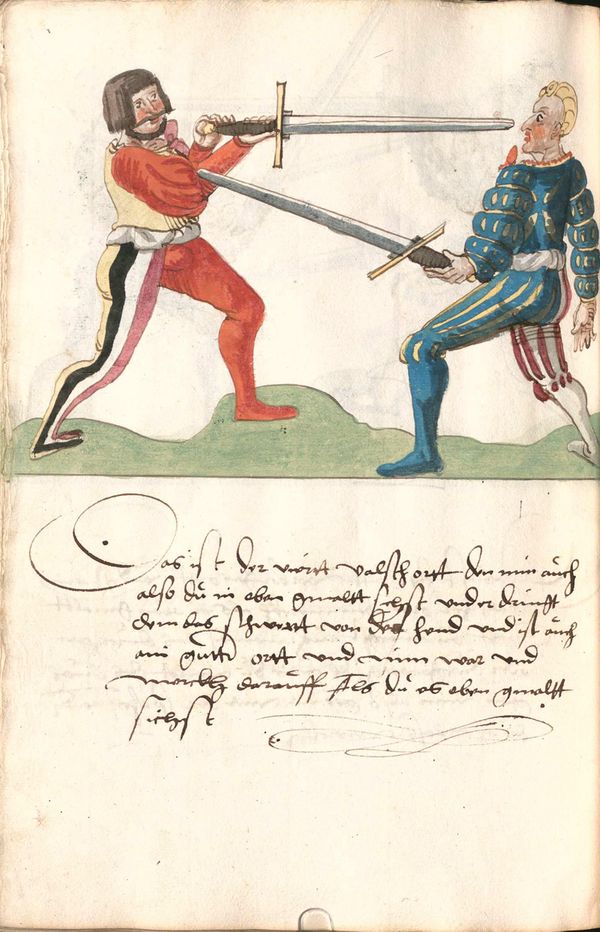 Das ist der viertt valsch ortt den nim auch
also du in eben gmaltt sichst under dringt
dem das schwertt von der hend und ist auch
ain gutt ortt und nim war und
merckh darauff Als du es eben gmaltt
sichst